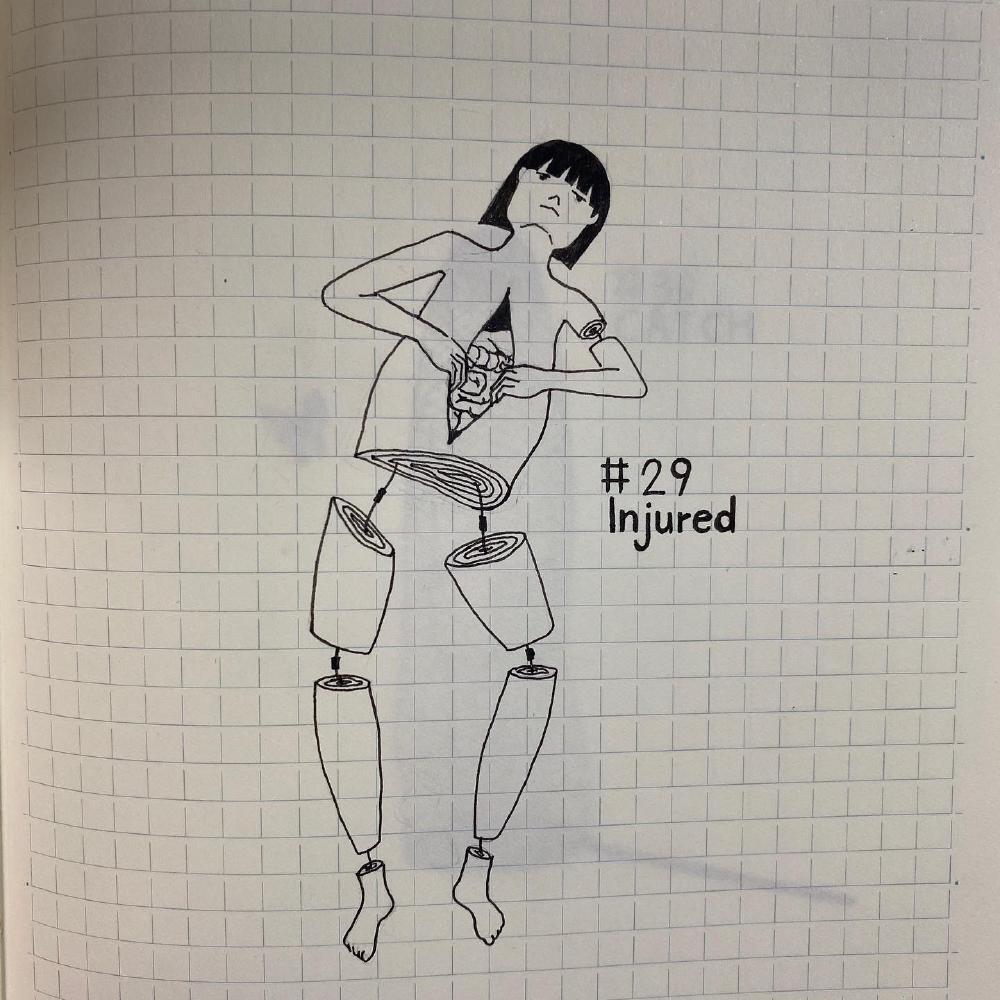 # 29
Injured